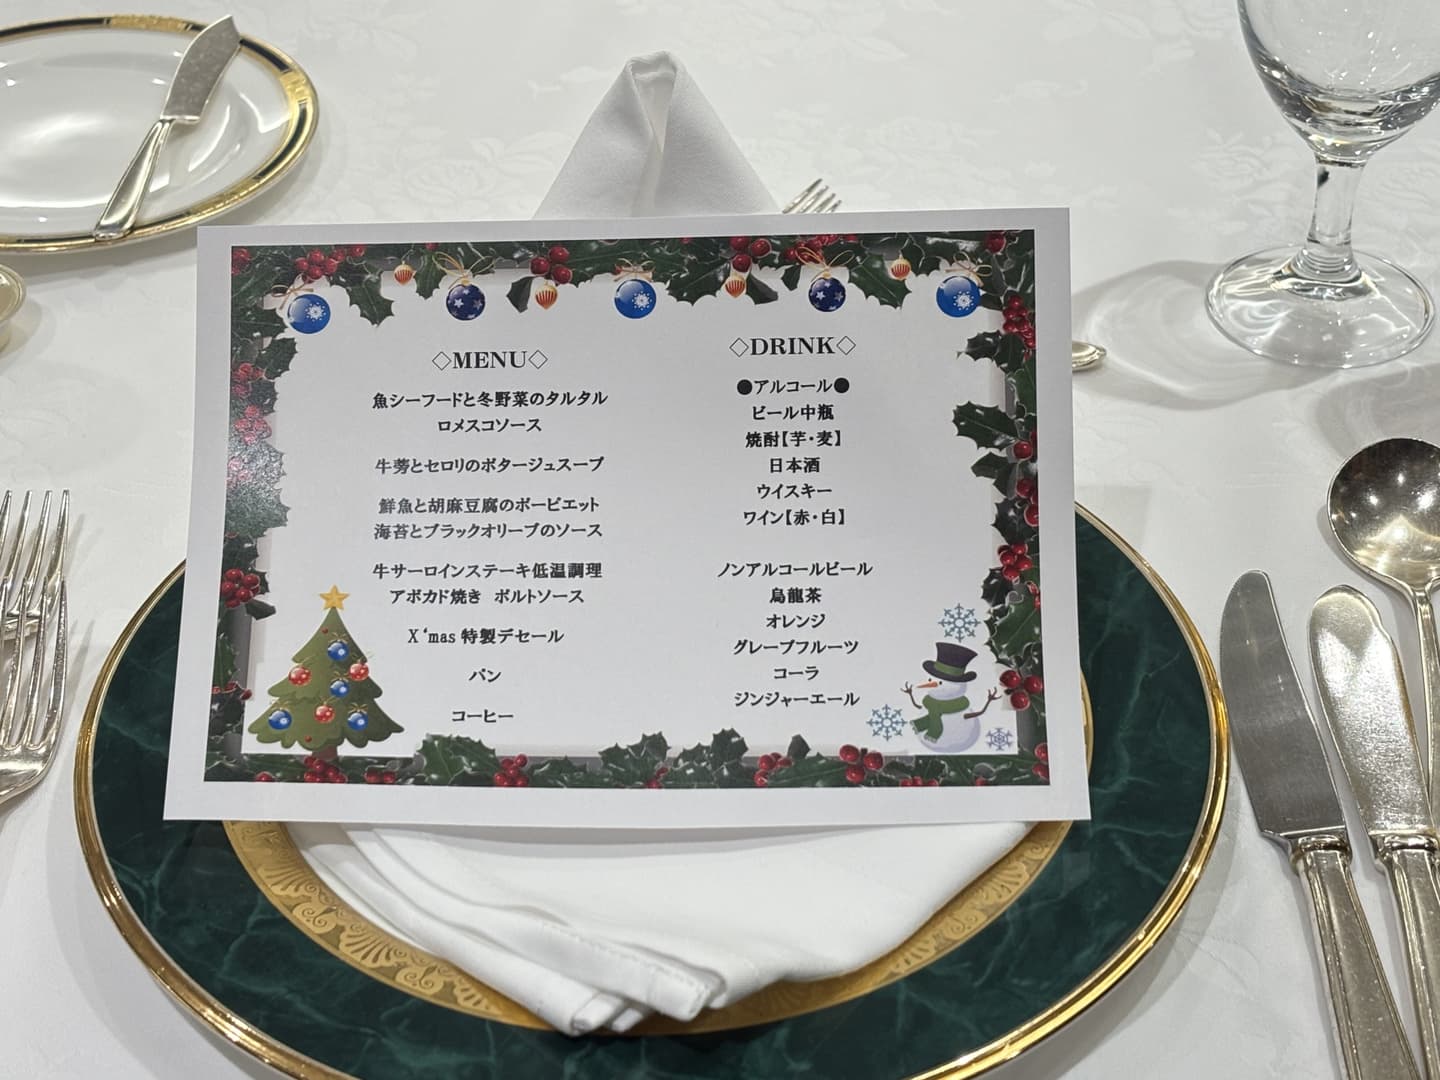 ◇MENU◇
魚シーフードと冬野菜のタルタル
ロメスコソース
牛蒡とセロリのポタージュスープ
鮮魚と胡麻豆腐のポーピエット
海苔とブラックオリーブのソース
牛サーロインステーキ低温調理
アボカド焼き ポルトソース
X‘mas 特製デセール
パン
コーヒー
◇DRINK◇
●アルコール●
ビール中瓶
焼酎【芋・麦】
日本酒
ウイスキー
ワイン【赤・白】
ノンアルコールビール
烏龍茶
オレンジ
グレープフルーツ
コーラ
ジンジャーエール